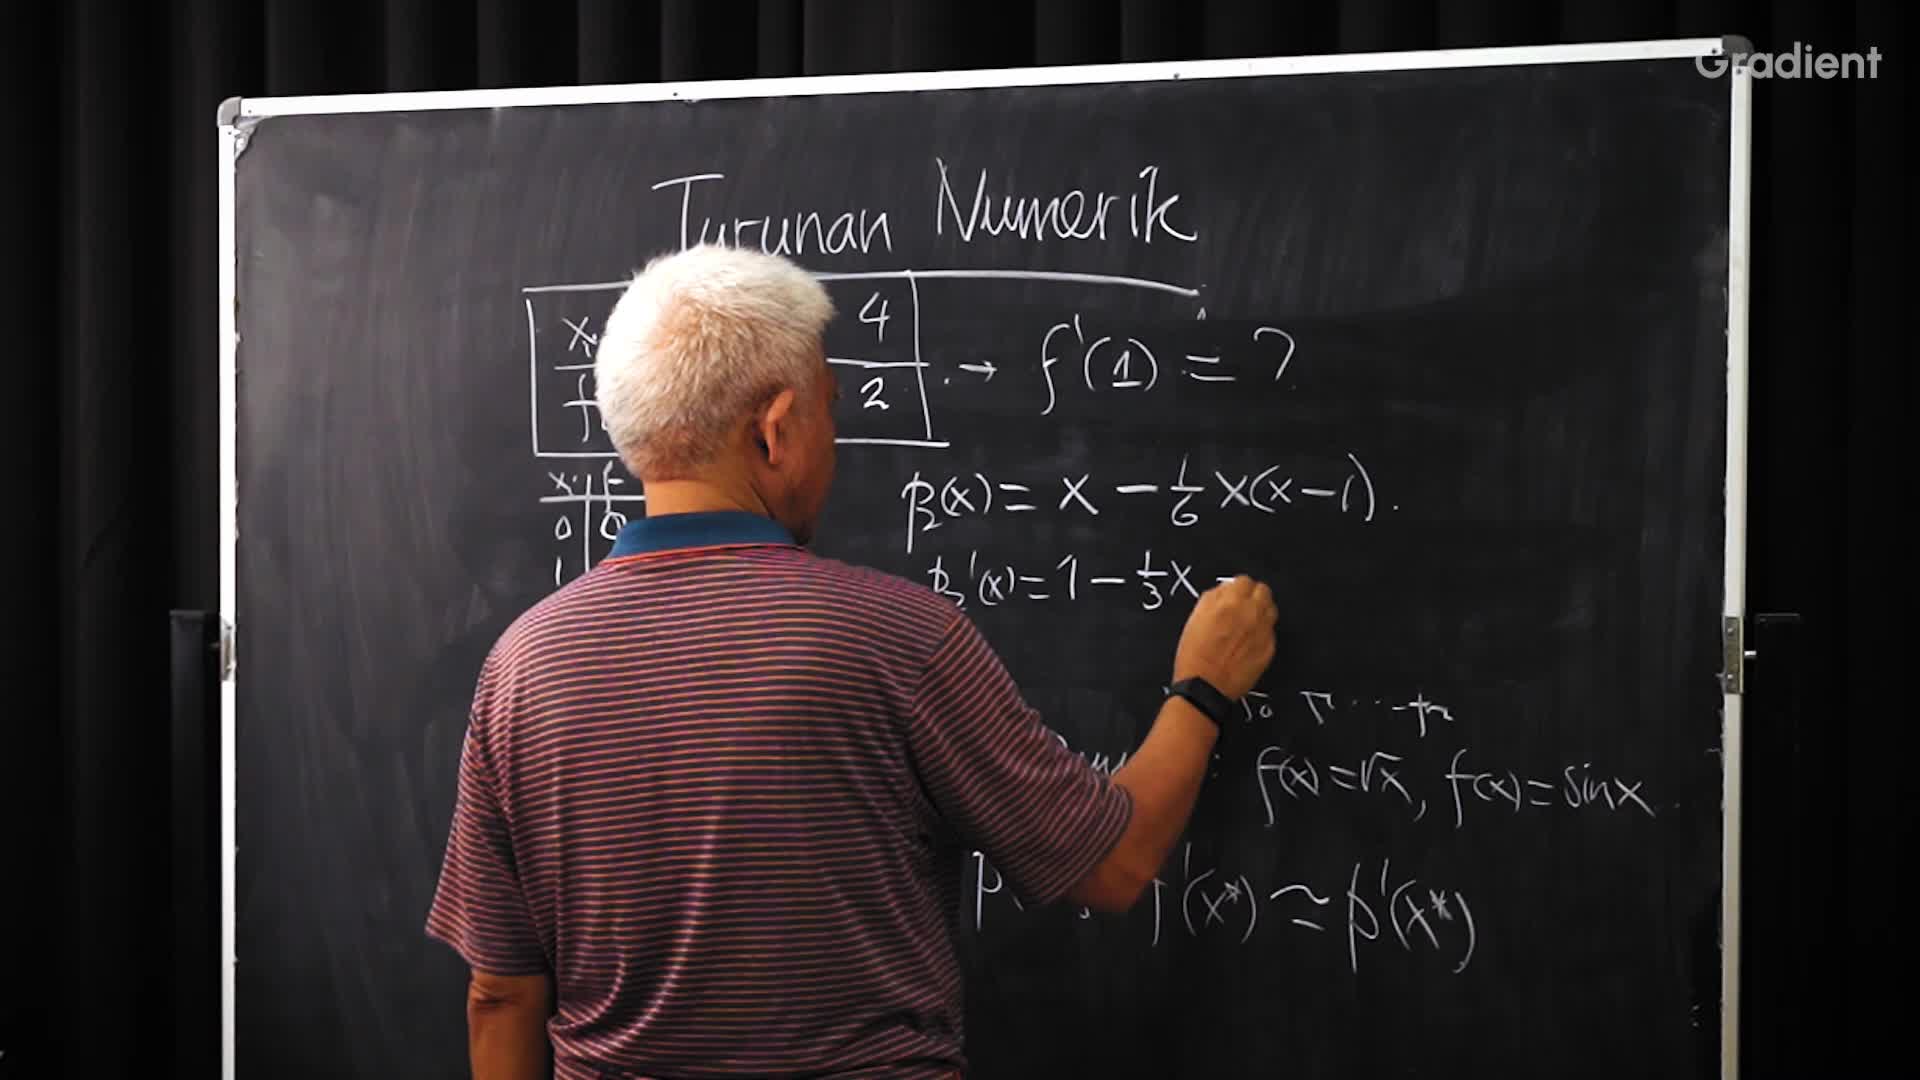 Gradient
Turunan Numerik
x 4 → f'(1) = ?
f 2
x f
0 0
1
p₂(x) = x − 1/6 x(x−1).
p₂'(x) = 1 − 1/3 x
f(x) = √x, f(x) = sin x
'(x*) ≃ p'(x*)